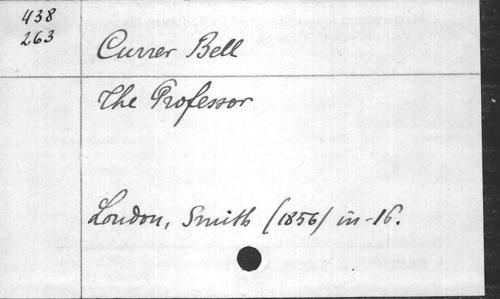 438
263
Currer Bell
The Professor
London, Smith (1856) in-16.